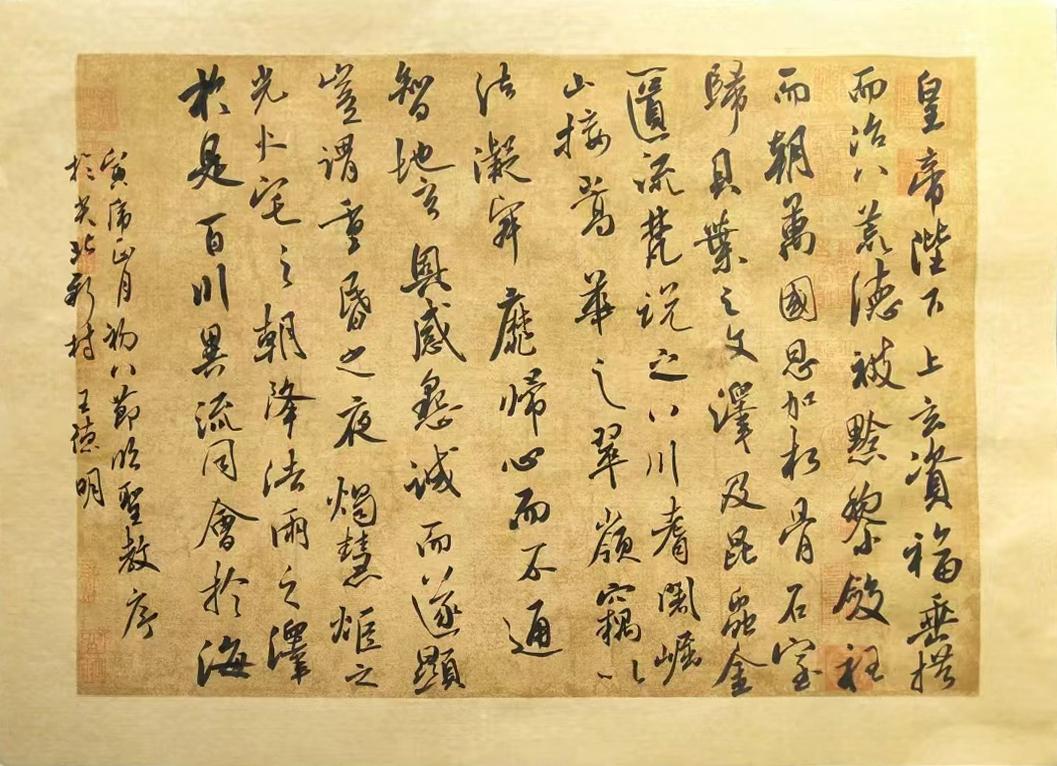 皇帝陛下上玄資福垂拱
而治八荒德被黔黎斂衽
而朝萬國恩加朽骨石室
歸貝葉之文澤及昆蟲金
匱流梵説之八川耆闍崛
山接嵩華之翠嶺竊以
法凝寂靡歸心而不通
智地玄奧感懇誠而遂顯
豈謂重昏之夜燭慧炬之
光火宅之朝降法雨之澤
於是百川異流同會於海
寅虎正月初八節臨聖教序
於北新村 王德明